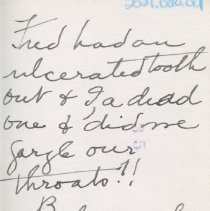 Fred had an
ulcerated tooth
out & I, a dead
one & did we
gargle our
throats!!